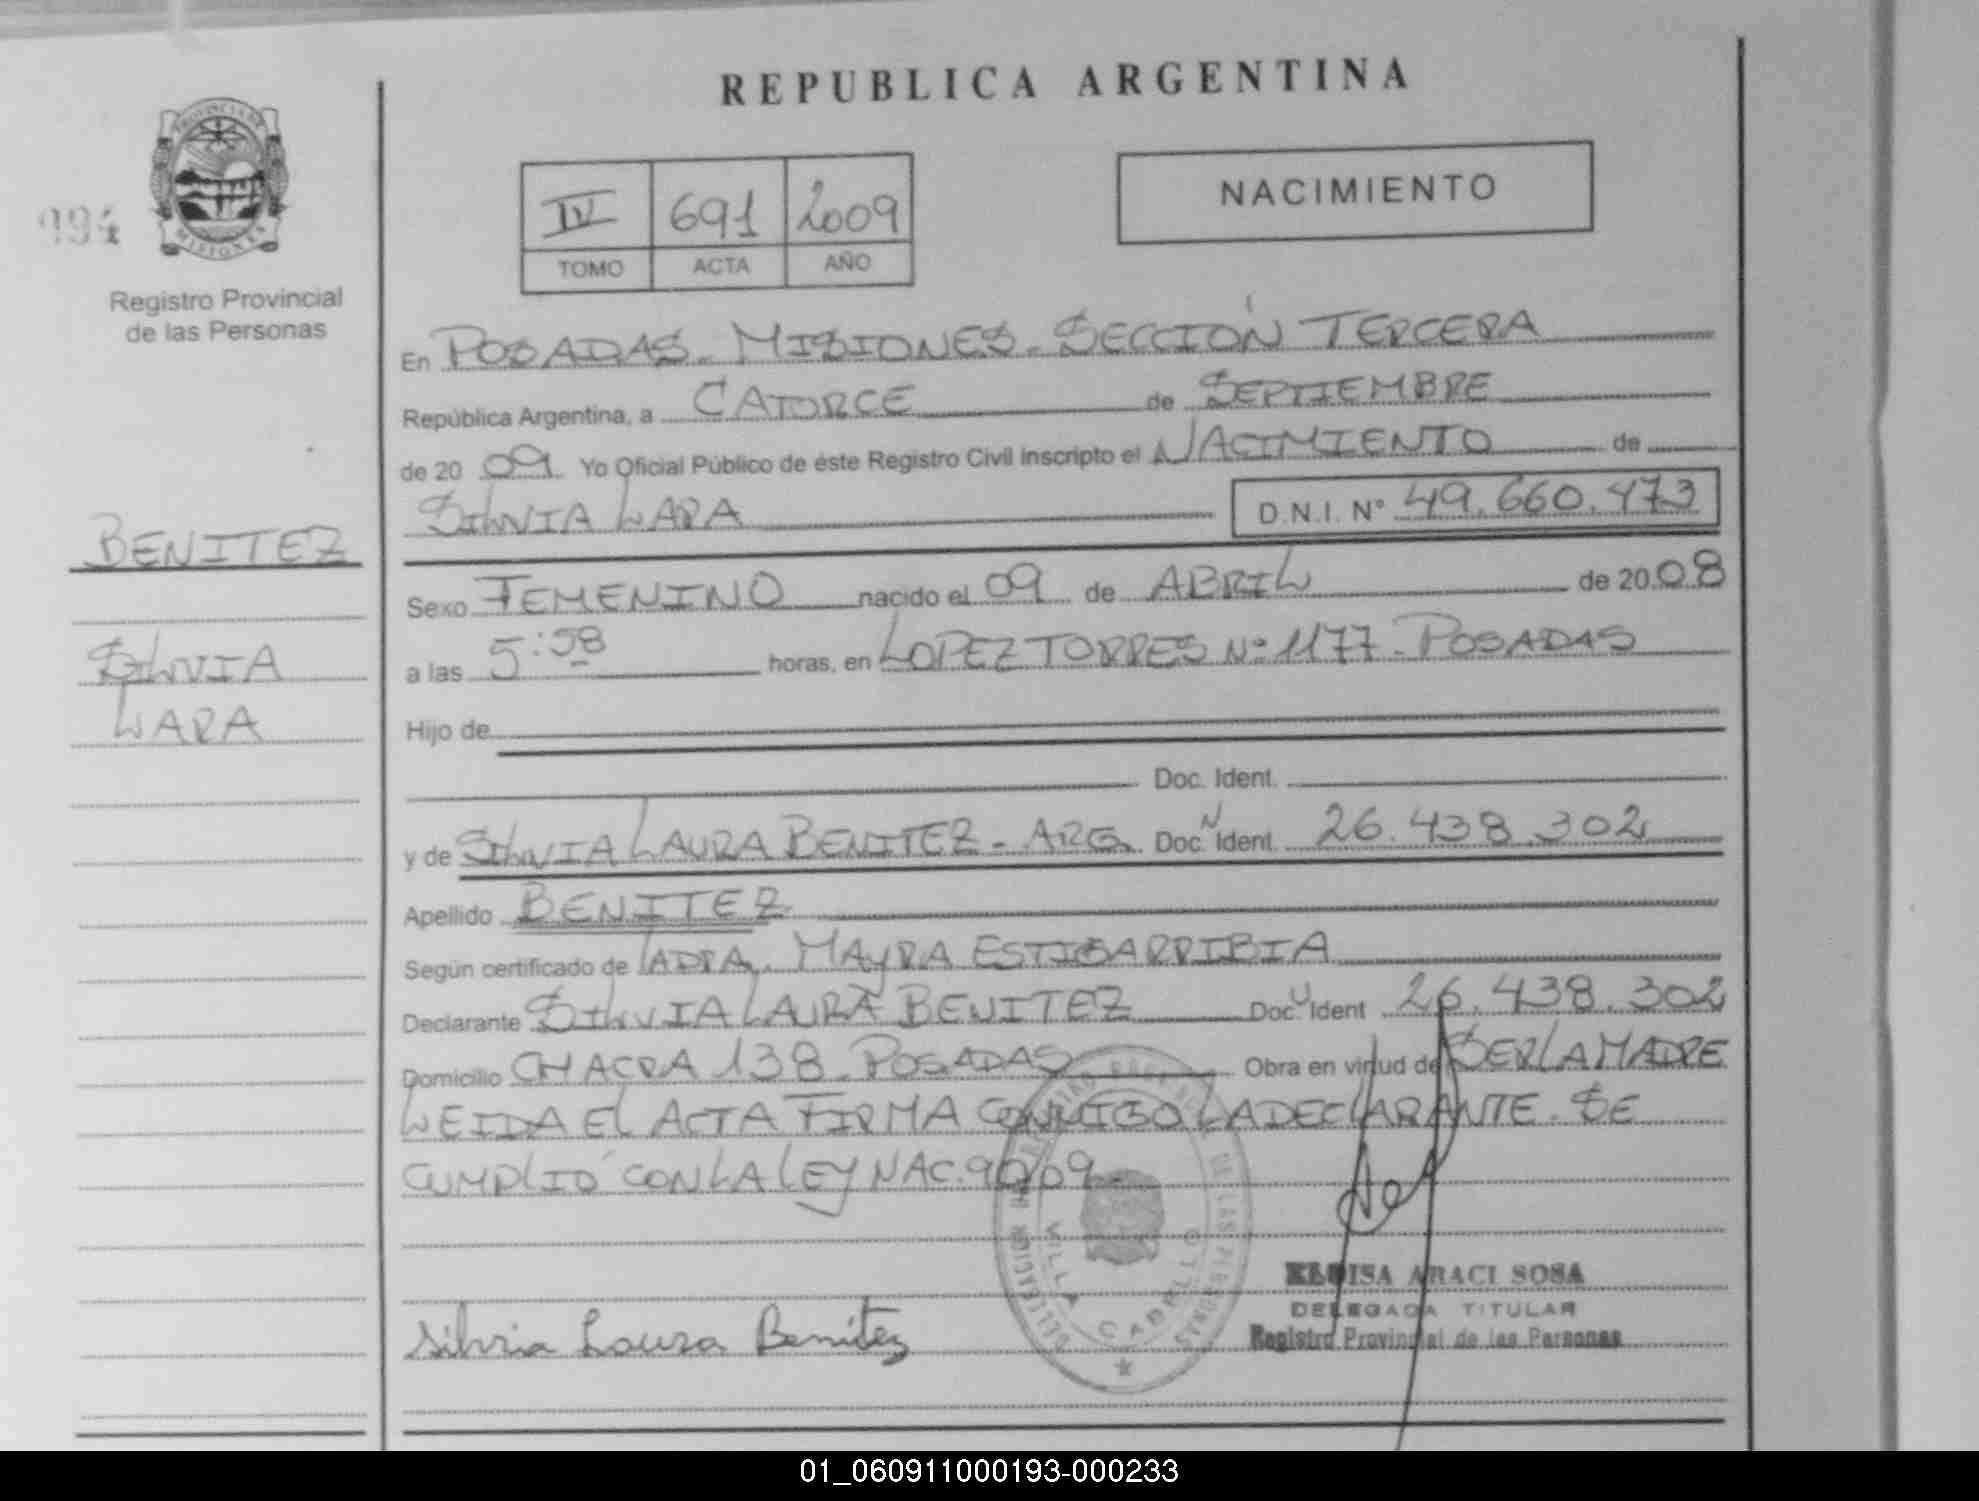 REPUBLICA ARGENTINA
PROVINCIA DE
MISIONES
994
Registro Provincial
de las Personas
IV 691 2009
TOMO ACTA AÑO
NACIMIENTO
En POSADAS. MISIONES. SECCIÓN TERCERA
República Argentina, a CATORCE de SEPTIEMBRE
de 2009 Yo Oficial Público de éste Registro Civil inscripto el NACIMIENTO de
SILVIA LARA D.N.I. Nº 49.660.473
BENITEZ
SILVIA
LARA
Sexo FEMENINO nacido el 09 de ABRIL de 2008
a las 5:58 horas, en LOPEZ TORRES Nº 1177. POSADAS
Hijo de
Doc. Ident.
y de SILVIA LAURA BENITEZ - ARG. Doc. N Ident. 26.438.302
Apellido BENITEZ
Según certificado de LA DRA. MAYRA ESTIGARRIBIA
Declarante SILVIA LAURA BENITEZ Doc. U Ident 26.438.302
Domicilio CHACRA 138. POSADAS Obra en virtud de SER LA MADRE
LEIDA EL ACTA FIRMA CONMIGO LA DECLARANTE. SE
CUMPLIÓ CON LA LEY NAC. 9009.
Silvia Laura Benítez
DELEGACION REGISTRO PROVINCIAL DE LAS PERSONAS
VILLA CABELLO
ELOISA ARACI SOSA
DELEGADA TITULAR
Registro Provincial de las Personas
01_060911000193-000233